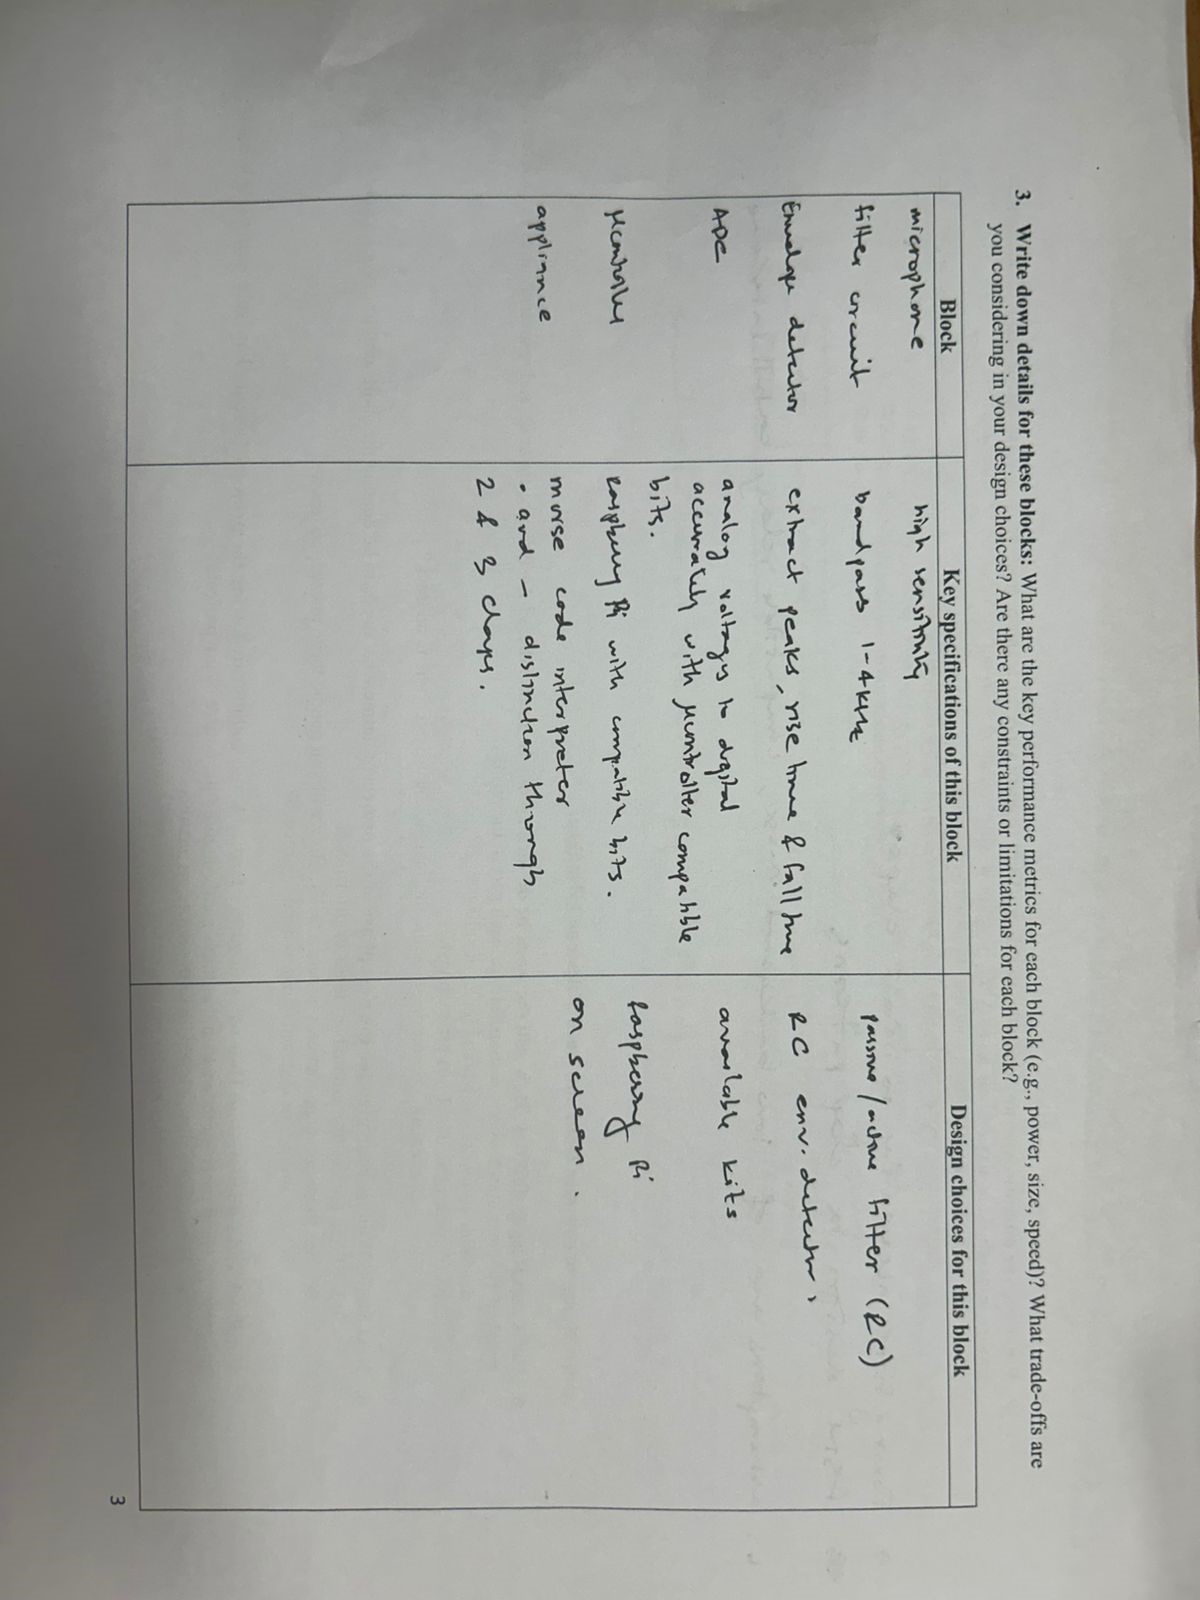 3. Write down details for these blocks: What are the key performance metrics for each block (e.g., power, size, speed)? What trade-offs are
you considering in your design choices? Are there any constraints or limitations for each block?
Block
Key specifications of this block
Design choices for this block
microphone
high sensitivity
filter circuit
bandpass 1-4KHz
passive/active filter (RC)
Envelope detector
extract peaks, rise time & fall time
RC env. detector,
ADC
analog voltages to digital
accurately with μcontroller compatible
bits.
available kits
μcontroller
raspberry Pi with compatible bits.
Raspberry Pi
appliance
morse code interpreter
• and – distinction through
2 & 3 claps.
on screen.
3